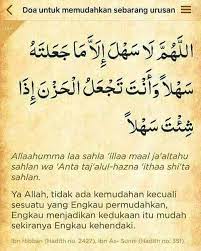 Doa untuk memudahkan sebarang urusan
اللَّهُمَّ لَا سَهْلَ إِلَّا مَا جَعَلْتَهُ
سَهْلًا وَأَنْتَ تَجْعَلُ الْحَزْنَ إِذَا
شِئْتَ سَهْلًا
Allaahumma laa sahla 'illaa maal ja'altahu
sahlan wa 'Anta taj'alul-hazna 'ithaa shi'ta
sahlan.
Ya Allah, tidak ada kemudahan kecuali
sesuatu yang Engkau permudahkan,
Engkau menjadikan kedukaan itu mudah
sekiranya Engkau kehendaki.
Ibn Hibban (Hadith no. 2427), Ibn As-Sunni (Hadith no. 351).